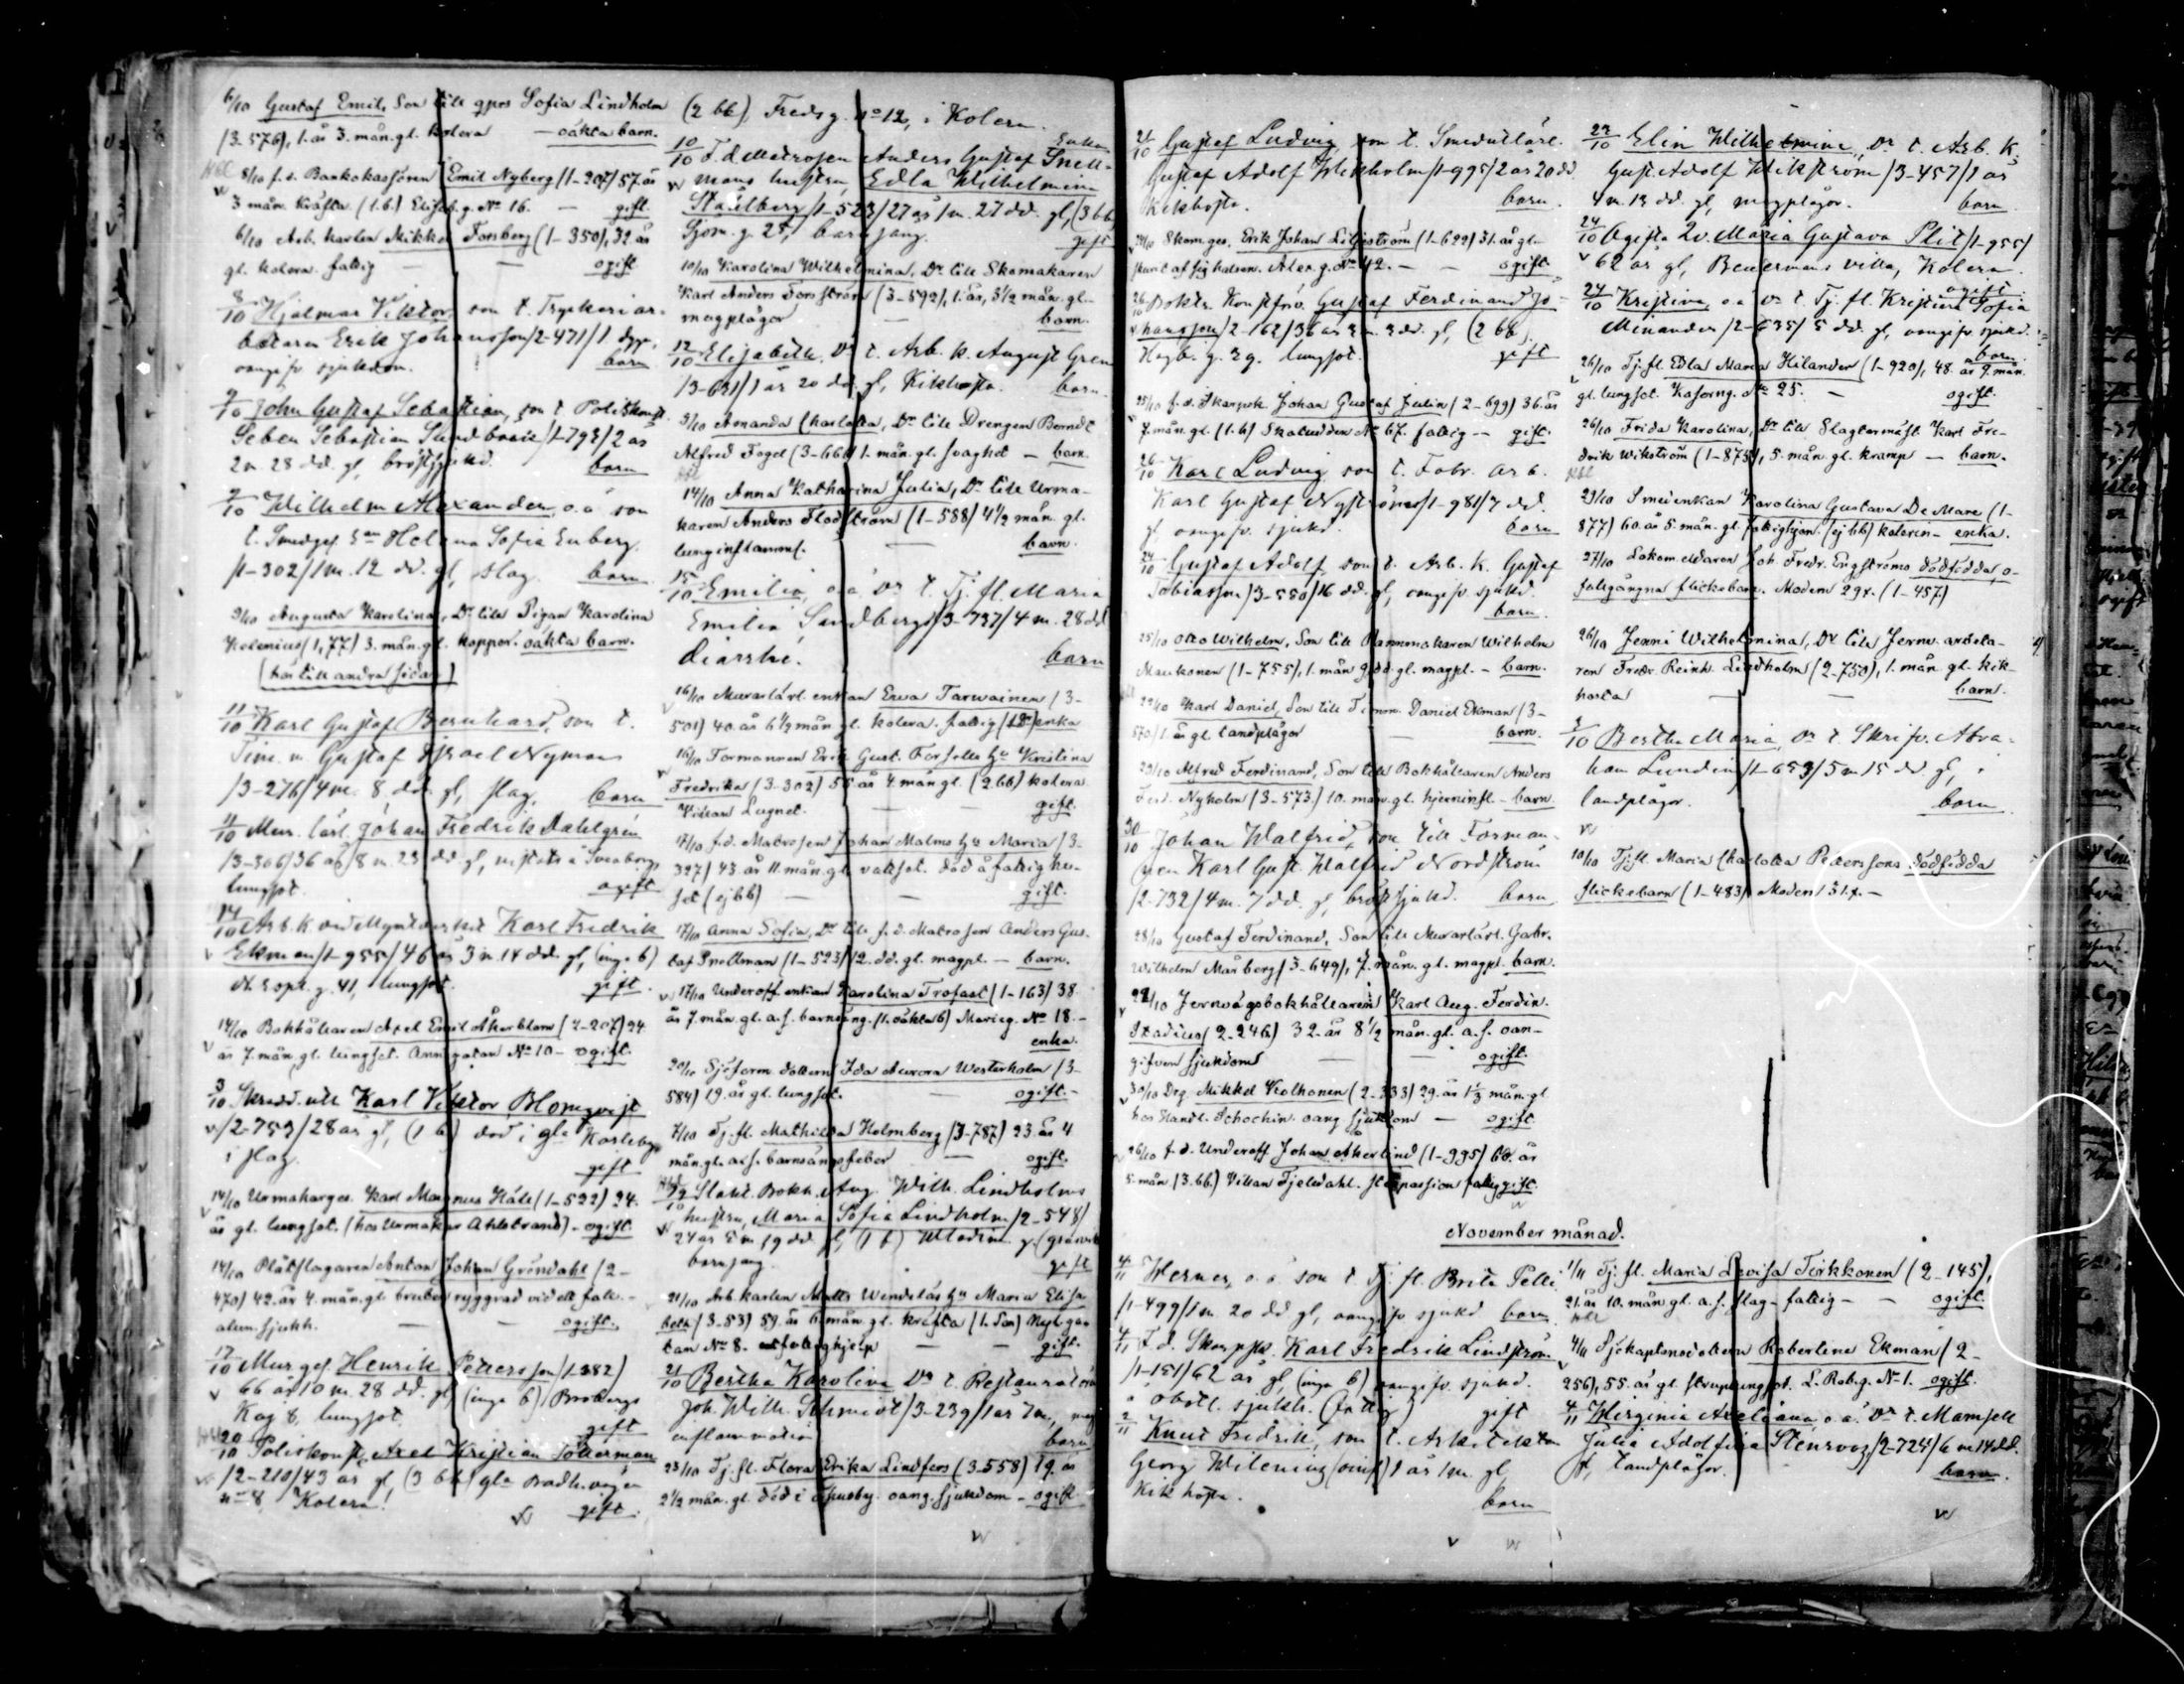 6/10 Gustaf Emil, Son till qprs Sofia Lindholm
(3-576), 1. år 3. mån. gl. Kolera — oäkta barn.
8/10 f. d. Bankokassören Emil Nyberg (1-207) 57. år
3 mån. kräfta. (1. b.) Elisab. g. No 16. — gift.
6/10 Arb. karlen Mikko Forsberg (1-350), 32 år
gl. kolera. fattig — — ogift
8/10 Hjalmar Viktor, son t. Tryckeriar-
betaren Erik Johansson /2-471/ 1 dygn,
oangifv sjukdom. barn
9/10 John Gustaf Sebastian, son t. Politikonst.
Seben Sebastian /1-793/ 2 år
2 m 28 dd. gl, bröstsjukd. barn
9/10 Wilhelm Alexander, o. ä. son
t. Smedges. Helena Sofia Enberg.
/1-302/ 1 m. 12 dd. gl, slag. barn
9/10 Augusta Karolina, Dr till Pigan Karolina
Kolenius (1,77) 3. mån. gl. koppor. oäkta barn.
(hör till andra sidan)
11/10 Karl Gustaf Bernhard, son t.
Tim. m. Gustaf Israel Nyman
/3-276/ 4 m. 8 dd. gl, slag. barn
11/10 Mur. lärl. Johan Fredrik Dahlgrén
/3-306/ 36 år 8 m. 23 dd gl, i Sveaborg
lungsot. ogift
14/10 Arb. k. vid Myntverket Karl Fredrik
Ekman /1-955/ 46 år 3 m. 14 dd. gl, (inga b)
g. 41, lungsot. gift.
14/10 Bokhållaren Axel Emil Åkerblom (2-207) 24
år 7. mån. gl. lungsot. Annegatan No 10 - ogift.
3/10 Skrädd. Karl Viktor Blomqvist
/2-759/ 28 år gl, (1 b) död i gla Karleby
i slag. gift
14/10 Urmakarges. Karl Magnus Håle (1-522) 24.
år gl. lungsot. (hos Urmakar Ahlstrand) - ogift.
14/10 Plåtslagaren Anton Johan Gröndahl (2-
470) 42. år 4. mån. gl. bruten ryggrad vid ett fall. -
alm. sjukh. — — ogift.
17/10 Murges. Henrik Pettersson /1-382/
66 år 10 m. 28 dd. gl, (inga b) Brobergs
Kaj 8, lungsot. gift
20/10 Poliskonst. Axel Kristian Söderman
/2-210/ 43 år gl, (3 bb) gla Badh. vägen
no 8, Kolera! gift.
(2 bb) Fredsg. no 12, i Kolera.
10/10 F. d. Matrosen Anders Gustaf Snell-
mans hustru, Edla Wilhelmina
Stålberg /1-523/ 27 år 1 m. 27 dd. gl, (3 bb)
Sjöm. g. 25, barnsäng. gift
10/10 Karolina Wilhelmina, Dr till Skomakaren
Karl Anders Forsström (3-592), 1. år, 3 1/2 mån. gl. -
magplågor — barn.
12/10 Elisabeth, Dr t. Arb. k. August Gren
/3-621/ 1 år 20 dd. gl, Kikhosta. barn.
9/10 Amanda Charlotta, Dr till Drengen Berndt
Alfred Fogel (3-661) 1. mån. gl. svaghet — barn.
14/10 Anna Katharina Julia, Dr till Urma-
karen Anders Flodström (1-588) 4 1/2 mån. gl.
lunginflamm. — barn.
15/10 Emilia, o. ä. Dr t. Tj. fl. Maria
Emilia Sundberg /3-737/ 4 m. 28 dd
diarrhé. barn
16/10 Murarlärl. enkan Ewa Tarwainen (3-
501) 40. år 6 1/2 mån. gl. kolera. fattig enka
16/10 Formannen Erik Gust. Forsells hu Kristina
Fredrika (3-302) 55 år 4. mån. gl. (2 bb) kolera
Villan Lugnet. — gift.
17/10 f. d. Matrosen Johan Malms hu Maria (3-
327) 43. år 11. mån. gl. vattsot. död å fattighu-
set (ej bb) — — gift.
17/10 Anna Sofia, Dr till f. d. Matrosen Anders Gus-
taf Snellman (1-523) 12. dd. gl. magpl. — barn.
17/10 Underoff. enkan Karolina Trofast (1-163) 38.
år 7. mån. gl. a. f. barnsäng. (1. oäkta b) Marieg. No 18. -
enka.
20/10 Sjöform. dottern Ida Aurora Westerholm (3-
584) 19. år gl. lungsot. — ogift. -
7/10 Tj. fl. Mathilda Holmberg (3-787) 23. år 4
mån. gl. a. f. barnsängsfeber — ogift.
Bokh. Aug. Wilh. Lindholms
hustru, Maria Sofia Lindholm /2-548/
24 år 5 m 19 dd. gl, (1 b)
barnsäng. gift
21/10 Arb. karlen Matts Windelås hu Maria Elisa-
beth (3-53) 59. år 6. mån. gl. kräfta (1. son) Nylgga
tan No 8. fattighjelp — — gift.
21/10 Bertha Karolina Dr t. Restauratör
Joh. Wilh. Schmidt /3-239/ 1 år 7 m,
inflammation barn
23/10 Tj. fl. Flora Erika Lindfors (3-558) 19. år
2 1/2 mån. gl. död i Thusby. oang. sjukdom - ogift.
21/10 Gustaf Ludvig, son t. Smedutlärl.
Gustaf Adolf Wikholm /1-995/ 2 år 20 dd.
Kikhosta. barn.
Skom. ges. Erik Johan Liljeström (1-622) 31. år gl. -
skurit af sig halsen. Alex. g. No 42. — — ogift.
26/10 Boktr. Konstförv. Gustaf Ferdinand Jo-
hansson /2-162/ 36 år 2 m. 3 dd. gl, (2 bb),
Högb. g. 29. lungsot. gift
25/10 f. d. Skarpsk. Johan Gustaf Julin (2-699) 36. år
7. mån. gl. (1. b) Skatudden No 67. fattig — gift.
26/10 Karl Ludvig son t. Fabr. arb.
Karl Gustaf Nyström /1-981/ 7 dd.
gl oangifv. sjukd. barn
24/10 Gustaf Adolf son t. Arb. K. Gustaf
Tobiasson /3-550/ 16 dd. gl, oangifv sjukd.
barn.
25/10 Otto Wilhelm, Son till Pannmakaren Wilhelm
Maukonen (1-755), 1. mån 9. dd. gl. magpl. - barn.
22/10 Karl Daniel, Son till Timm. Daniel Ekman (3-
570) 1. år gl. tandplågor — barn.
23/10 Alfred Ferdinand, Son till Bokhållaren Anders
Ferd. Nyholm (3-573.) 10. mån. gl. hjerninfl. - barn
30/10 Johan Walfrid, son till Forman-
nen Karl Gust. Walfrid Nordström
/2-732/ 4 m. 7 dd. gl, bröstsjukd. barn
28/10 Gustaf Ferdinand, Son till Murarlärl. Gabr.
Wilhelm Marberg (3-649), 7. mån. gl. magpl. barn.
22/10 Jernvägsbokhållaren Karl Aug. Ferdin.
Stadius (2-246) 32. år 8 1/2 mån. gl. a. f. oan-
gifven sjukdom — — ogift.
30/10 Drg. Mikkel Kolhonen (2-333) 29. år 1 1/2 mån. gl
hos Handl. Schochin. oang sjukdom — ogift
26/10 f. d. Underoff. Johan Åkerlind (1-995) 60. år
5. mån (3. bb.) Villan Fjelldahl. fattig gift.
23/10 Elin Wilhelmina, Dr t. Arb. K.
Gust. Adolf Wikström /3-457/ 1 år
4 m. 13 dd. gl, magplågor. barn
24/10 Ogifta Qv. Maria Gustava Plit /1-955/
62 år gl, villa, Kolera.
ogift
24/10 Kristina, o. ä. Dr t. Tj. fl. Kristina Sofia
Minander /2-635/ 5 dd. gl, oangifv sjukd.
barn.
26/10 Tj. fl. Edla Maria Hilander (1-920), 48. år 9. mån.
gl. lungsot. Kaserng. No 25. — ogift.
26/10 Frida Karolina, Dr till Slagtermäst. Karl Fre-
drik Wikström (1-875), 5. mån. gl. kramp — barn.
23/10 Smedenkan Karolina Gustava De Mare (1-
877) 60. år 5. mån. gl. fattighjon. (ej bb) kolerin - enka.
27/10 Lokom. eldaren Joh. Fredr. Engströms dödfödda, o-
fullgångna flickebarn. Modern 29 år. (1-457)
26/10 Jenni Wilhelmina, Dr till Jernv. arbeta-
ren Fredr. Reinh. Lindholm (2-750), 1. mån gl. kik-
hosta — — barn.
1/10 Bertha Maria, Dr t. Skrifv. Abra-
ham Lundin /1-653/ 5 m 15 dd. gl, i
tandplågor. barn
10/10 Tj. fl. Maria Charlotta Petterssons dödfödda
flickebarn (1-483) Modern 31 år. —
November månad.
4/11 Werner, o. ä. son t. Tj. fl. Brita Pelli
/1-499/ 1 m. 20 dd gl, oangifv sjukd barn
4/11 F. d. Skarpsk. Karl Fredrik Lindström
/1-151/ 62 år gl, (inga b) oangifv. sjukd.
å obotl. sjukh. (fattig) gift
2/11 Knut Fredrik, son t. Arkitekten
Georg Wilenius 1 år 1 m. gl,
Kikhosta. barn
1/11 Tj. fl. Maria Lovisa Tirkkonen (2-145),
21. år 10. mån gl. a. f. slag - fattig — — ogift.
4/11 Sjökaptensdottern Robertina Ekman (2-
256), 55. år gl. struplungsot. L. Robg. No 1. ogift.
4/11 Werginia Axeliana, o. ä. Dr t. Mamsell
Julia Adolfina Stenroos /2-724/ 6 m 14 dd.
gl, tandplågor. barn.